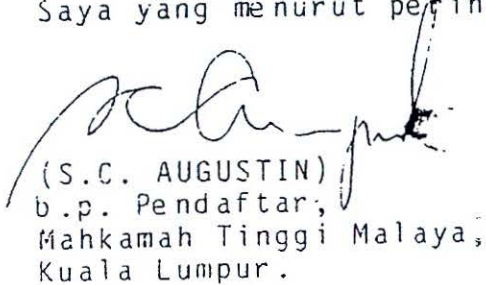 Saya yang menurut
(S.C. AUGUSTIN)
b.p. Pendaftar,
Mahkamah Tinggi Malaya,
Kuala Lumpur.